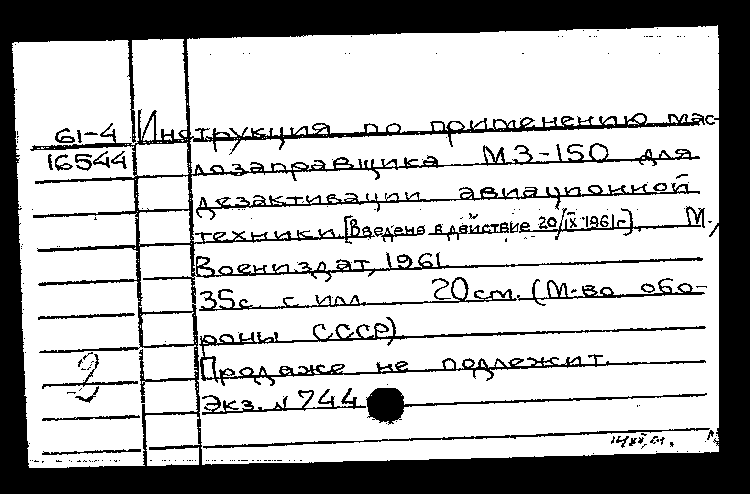 61-4 Инструкция по применению мас-
16544 лозаправщика МЗ-150 для
дезактивации авиационной
техники. [Введена в действие 20/IX 1961г.]. М.,
Воениздат, 1961
35с. с илл. 20см. (М-во обо-
роны СССР)
2 Продаже не подлежит.
Экз. № 744